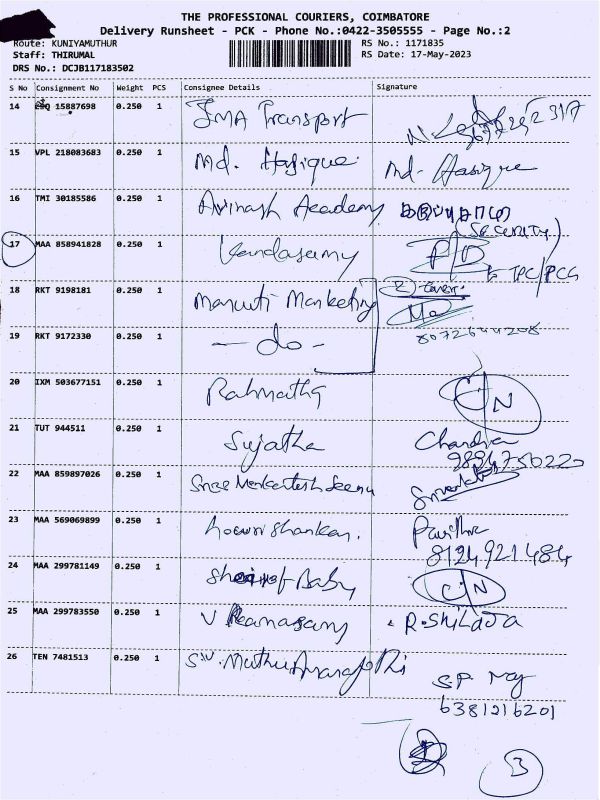 THE PROFESSIONAL COURIERS, COIMBATORE
Delivery Runsheet - PCK - Phone No.:0422-3505555 - Page No.:2
Route: KUNIYAMUTHUR RS No.: 1171835
Staff: THIRUMAL RS Date: 17-May-2023
DRS No.: DCJB117183502
S No Consignment No Weight PCS Consignee Details Signature
14 15887698 0.250 1 JMA Transport
15 VPL 218083683 0.250 1 Md. Hasique Md- Hasique
16 TMI 30185586 0.250 1 Avinash Academy
(SECURITY)
17 MAA 858941828 0.250 1 Kandasamy
TPC/PCG
18 RKT 9198181 0.250 1 Maruuti Marketing
19 RKT 9172330 0.250 1 - do -
20 IXM 503677151 0.250 1 Rahmath C/N
21 TUT 944511 0.250 1 Sujatha Chandra
22 MAA 859897026 0.250 1 Sree Venkatesh
23 MAA 569069899 0.250 1 Gowrishankar. Pavithra
8124921484
24 MAA 299781149 0.250 1 Baby C/N
25 MAA 299783550 0.250 1 V R.SHILAJA
26 TEN 7481513 0.250 1 S.V. S.P. Raj
6381216201
3